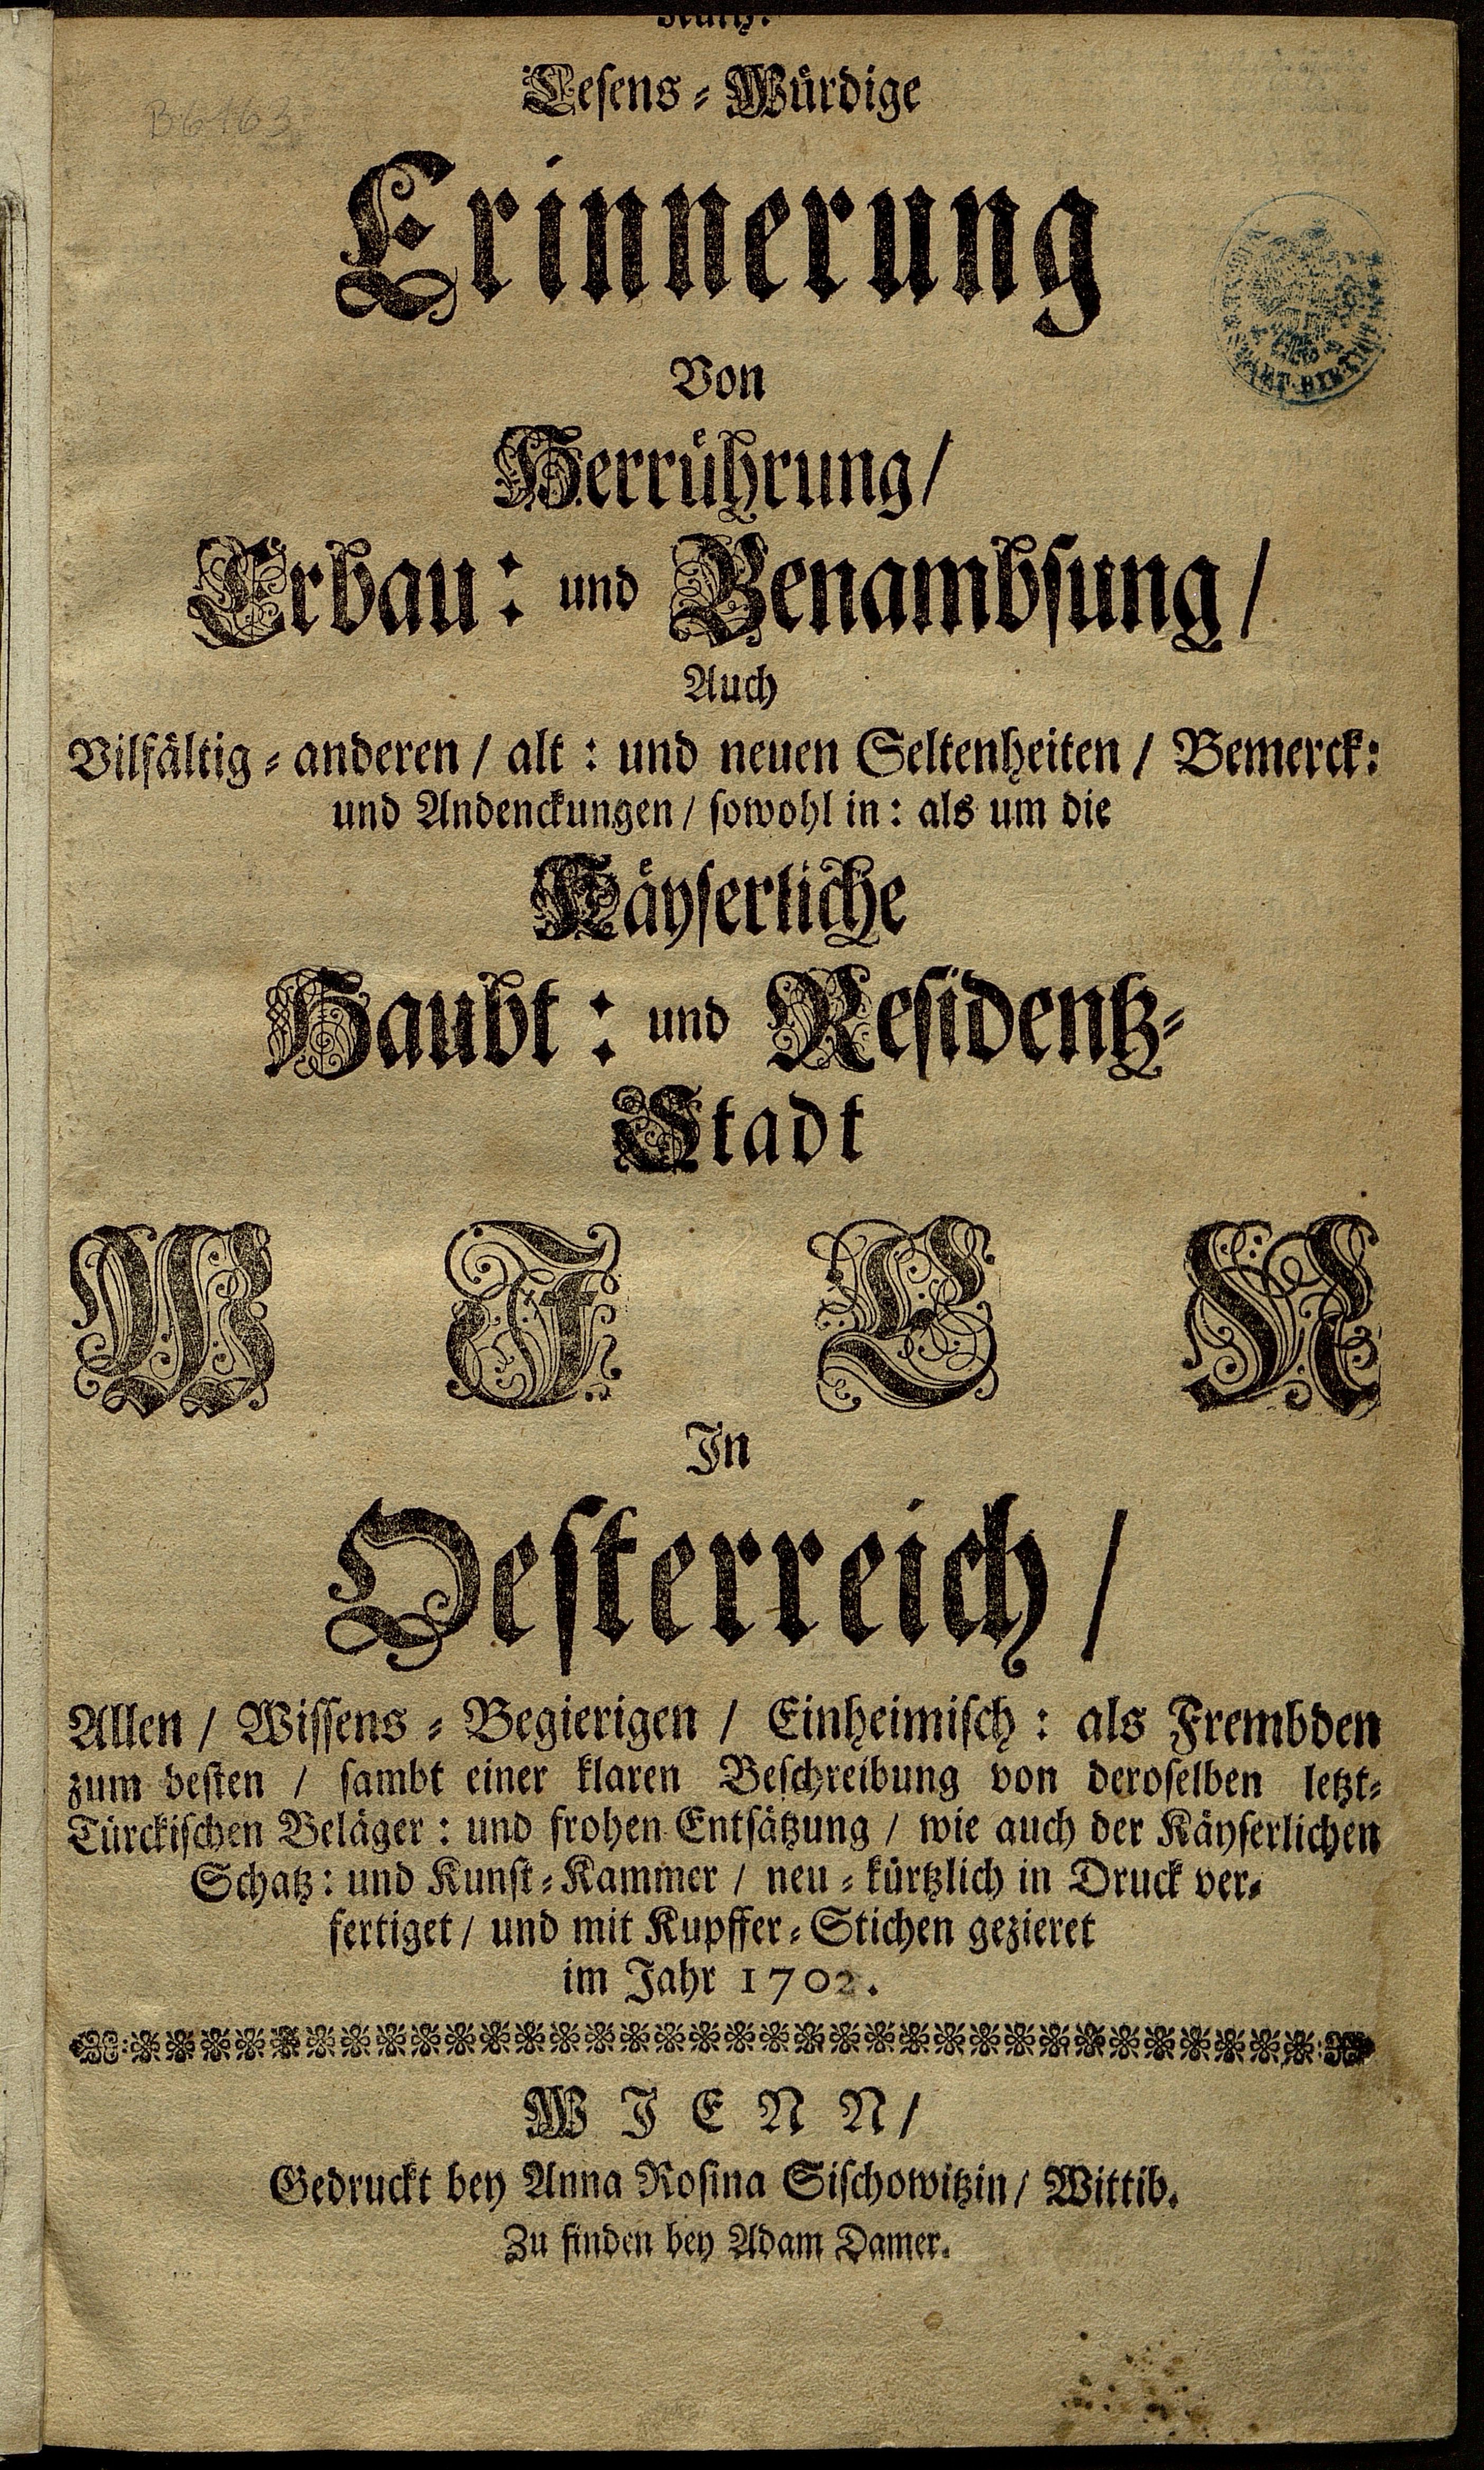 Lesens-Würdige
Erinnerung
Von
Herrührung/
Erbau: und Benambsung/
Auch
Vilfältig-anderen / alt: und neuen Seltenheiten / Bemerck:
und Andenckungen / sowohl in: als um die
Käyserliche
Haubt: und Residentz-
Stadt
WIEN
In
Oesterreich /
Allen / Wissens-Begierigen / Einheimisch: als Frembden
zum besten / sambt einer klaren Beschreibung von deroselben letzt-
Türckischen Beläger: und frohen Entsätzung / wie auch der Käyserlichen
Schatz: und Kunst-Kammer / neu-kürtzlich in Druck ver-
fertiget / und mit Kupffer-Stichen gezieret
im Jahr 1702.
WIENN/
Gedruckt bey Anna Rosina Sischowitzin / Wittib.
Zu finden bey Adam Damer.